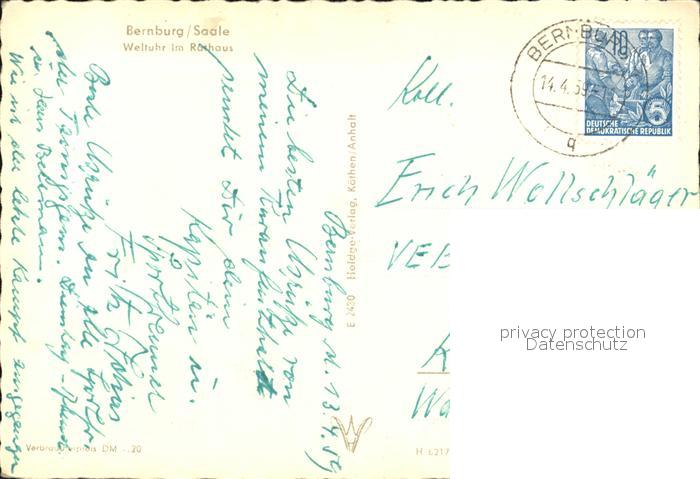 Bernburg/Saale
Weltuhr im Rathaus
Bernburg d. 13.4.59
Die besten Grüße von
meinem Kuraufenthalt
sendet Dir dein
Kapitän u.
Sportfreund
Fritz Tobias
Beste Grüße an alle Sportfr.
der Trainigsgem.
Wie ist der letzte Kampf ausgegangen
E 2430 Holdge-Verlag, Köthen/Anhalt
Verbraucherpreis DM -.20
H 6217
BERNBURG
14.4.59
q
10
5
DEUTSCHE
DEMOKRATISCHE REPUBLIK
Koll.
Erich Wollschläger
VEB
K
Wa
privacy protection
Datenschutz